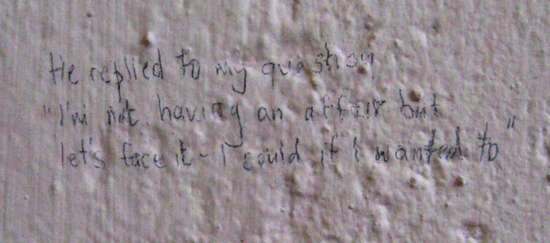 He replied to my question
"I'm not having an affair but
let's face it - I could if I wanted to"